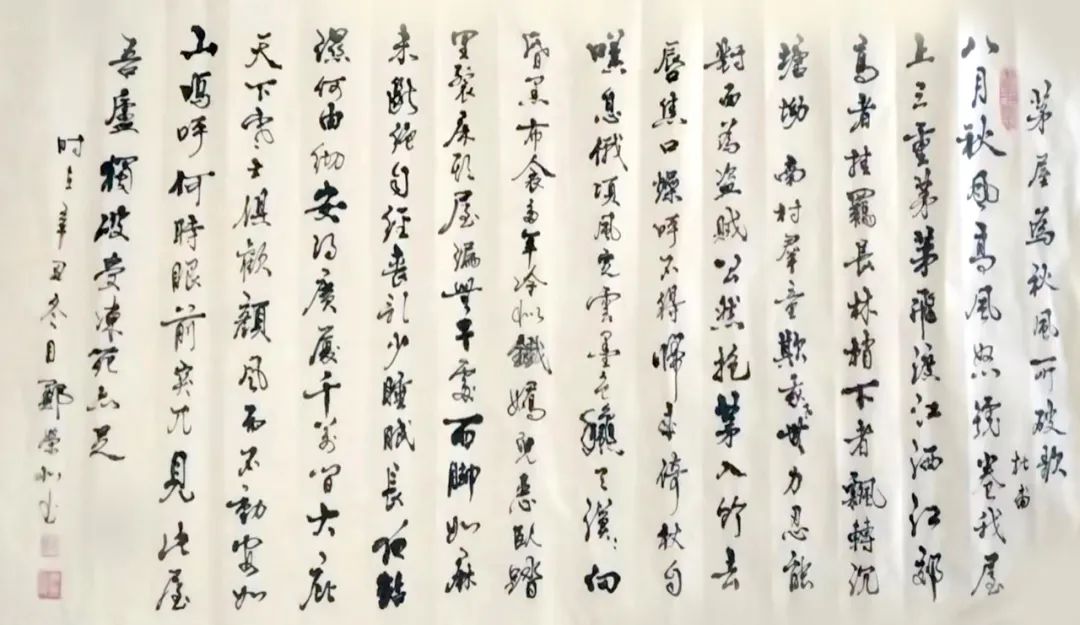 茅屋為秋風所破歌
杜甫
八月秋風高風怒號卷我屋
上三重茅茅飛渡江洒江郊
高者挂罥長林梢下者飄轉沉
塘坳南村羣童欺我老無力忍能
對面為盜賊公然抱茅入竹去
唇焦口燥呼不得歸來倚杖自
嘆息俄頃風定雲墨色秋天漠漠向
昏黑布衾多年冷似鐵嬌兒惡臥踏
里裂床頭屋漏無干處雨腳如麻
未斷絕自經喪亂少睡眠長夜沾
濕何由徹安得廣廈千萬間大庇
天下寒士俱歡顏風雨不動安如
山嗚呼何時眼前突兀見此屋
吾廬獨破受凍死亦足
时在辛丑冬月鄭榮书